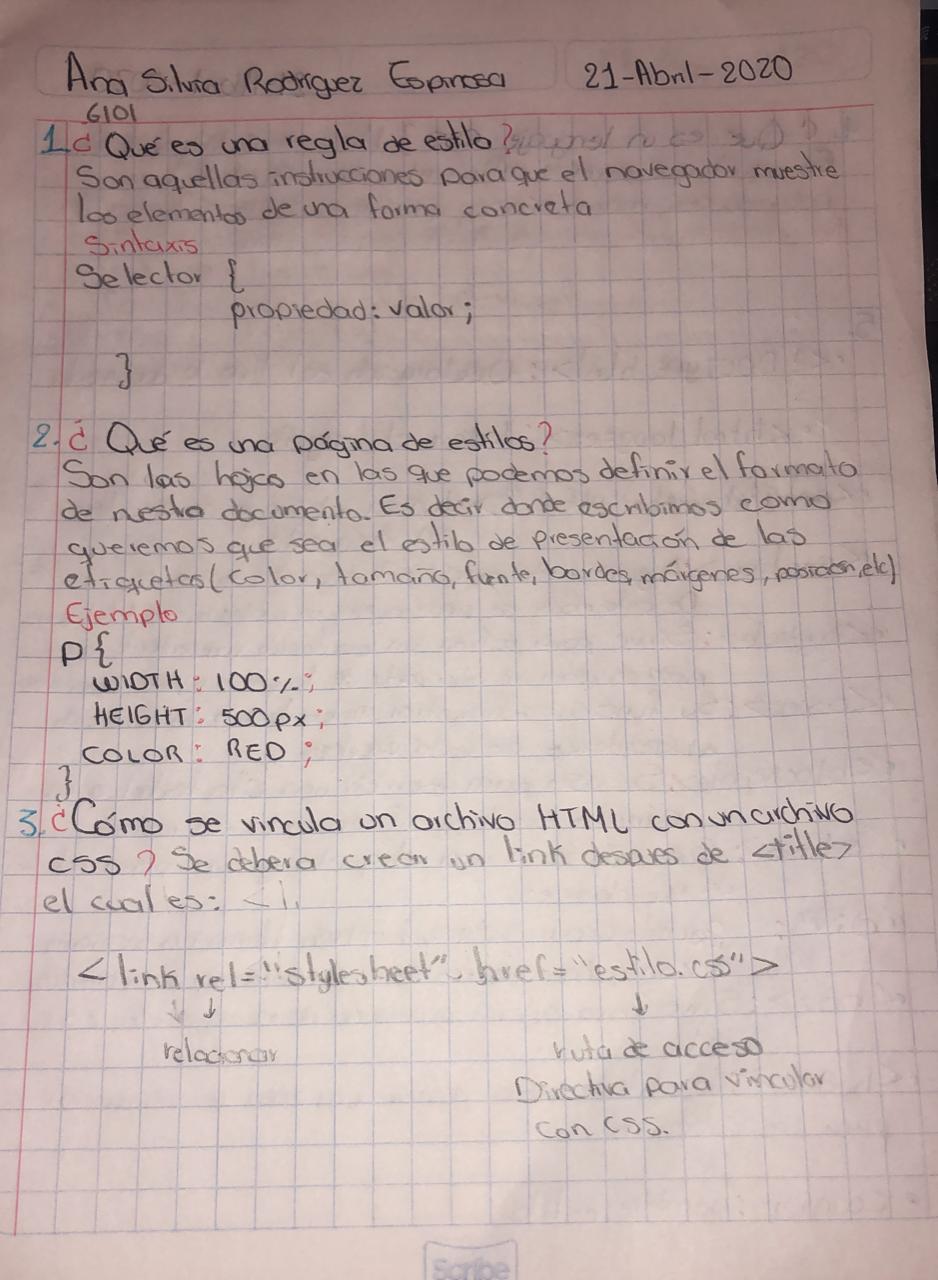 Ana Silvia Rodriguez Espinosa 21-Abril-2020
6101
1. ¿Qué es una regla de estilo?
Son aquellas instrucciones para que el navegador muestre
los elementos de una forma concreta
Sintaxis
Selector {
propiedad: valor;
}
2. ¿Qué es una página de estilos?
Son las hojas en las que podemos definir el formato
de nestro documento. Es decir donde escribimos como
queremos que sea el estilo de presentación de las
etiquetas (color, tamaño, fuente, bordes, márgenes, posición, etc)
Ejemplo
P{
WIDTH: 100%;
HEIGHT: 500px;
COLOR: RED;
}
3. ¿Cómo se vincula un archivo HTML con un archivo
CSS? Se debera crear un link despues de <title>
el cual es:
<link rel="stylesheet" href="estilo.css">
↓ ↓ ↓
relacionar ruta de acceso
Directiva para vincular
con CSS.
Scribe